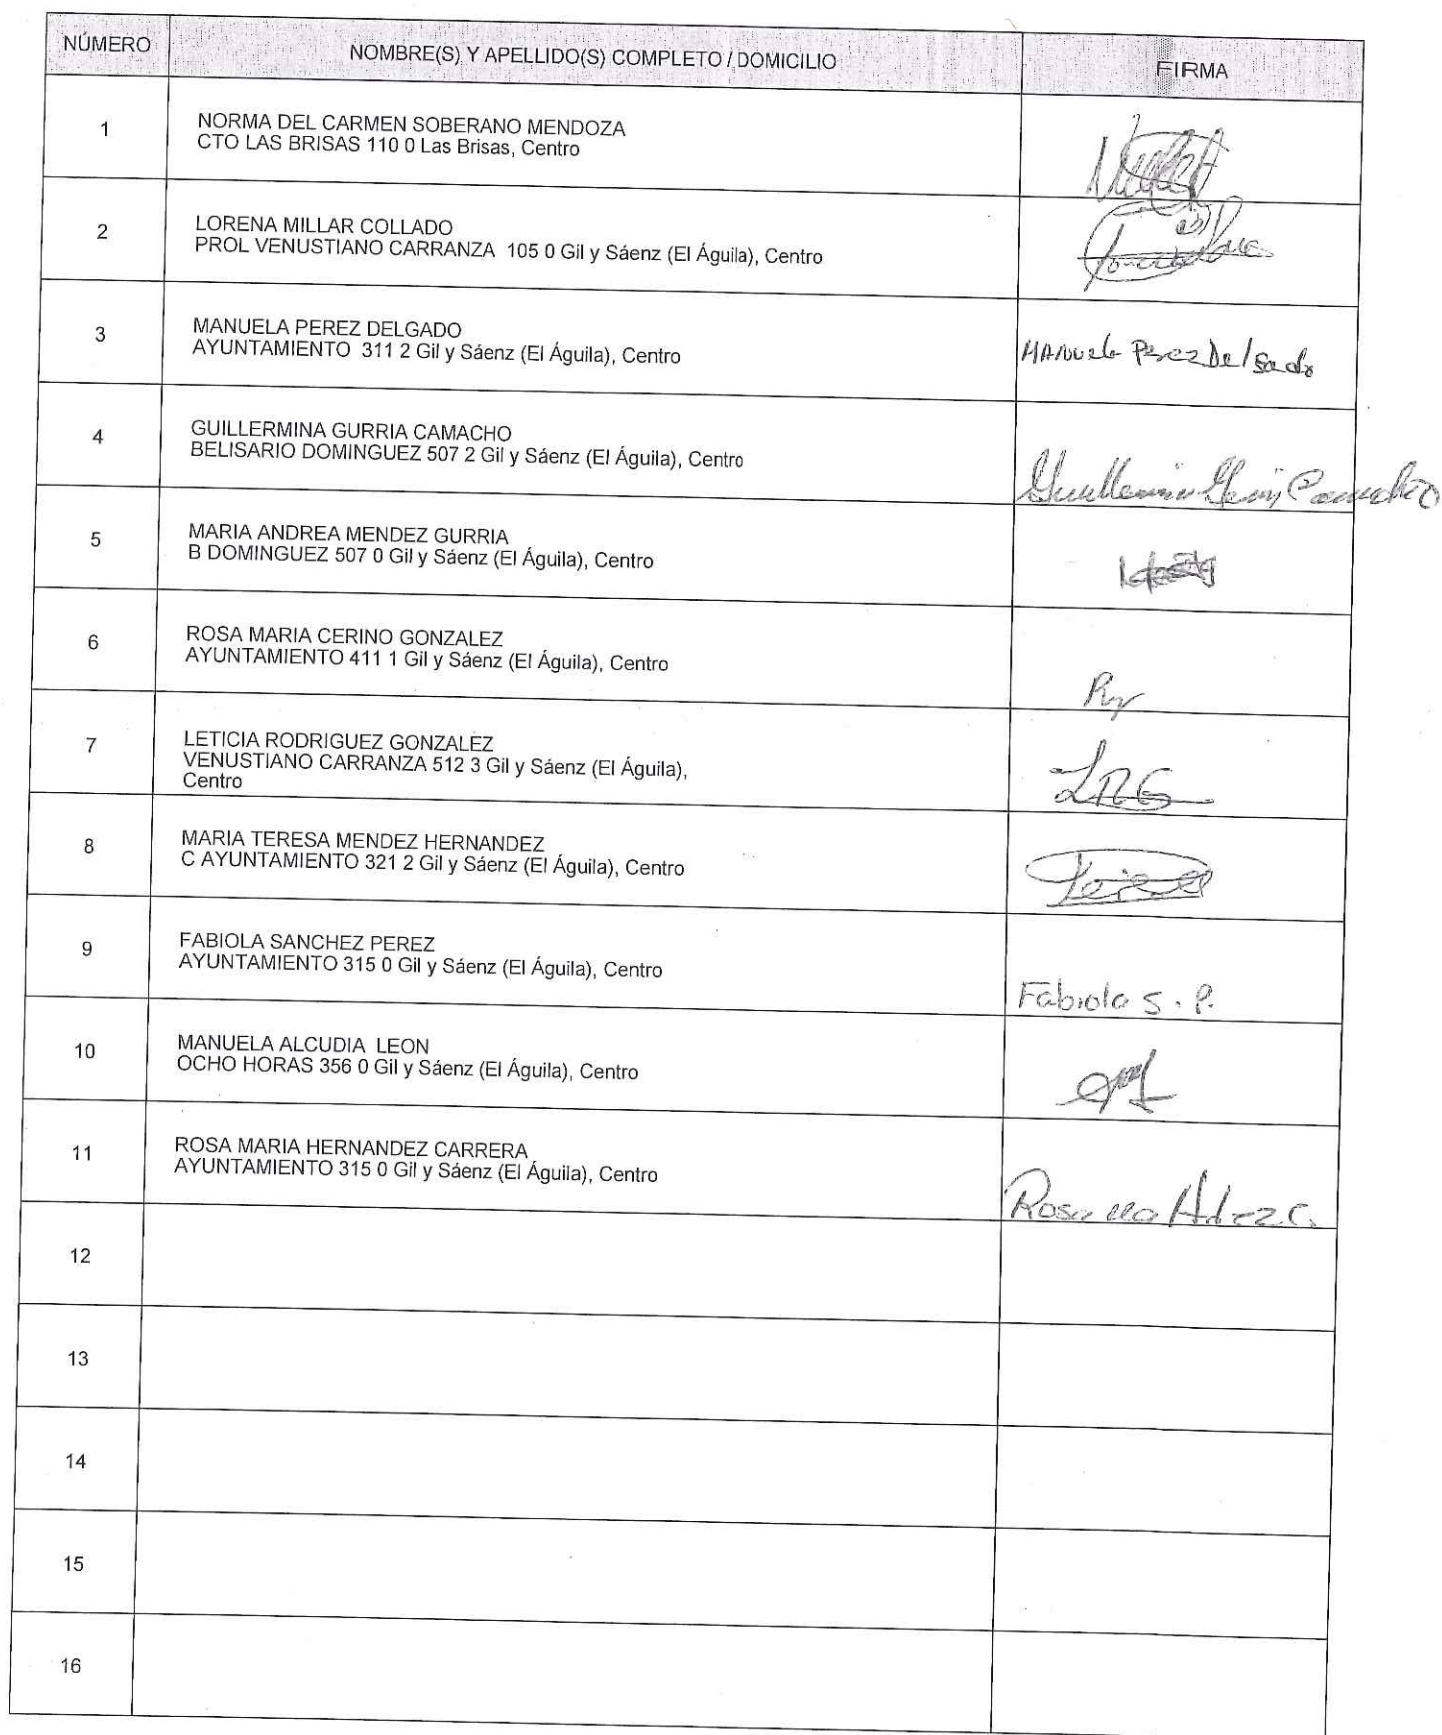 NÚMERO NOMBRE(S) Y APELLIDO(S) COMPLETO / DOMICILIO FIRMA
1 NORMA DEL CARMEN SOBERANO MENDOZA
CTO LAS BRISAS 110 0 Las Brisas, Centro
2 LORENA MILLAR COLLADO
PROL VENUSTIANO CARRANZA 105 0 Gil y Sáenz (El Águila), Centro
3 MANUELA PEREZ DELGADO
AYUNTAMIENTO 311 2 Gil y Sáenz (El Águila), Centro
MANuela Perez Delgado
4 GUILLERMINA GURRIA CAMACHO
BELISARIO DOMINGUEZ 507 2 Gil y Sáenz (El Águila), Centro
5 MARIA ANDREA MENDEZ GURRIA
B DOMINGUEZ 507 0 Gil y Sáenz (El Águila), Centro
6 ROSA MARIA CERINO GONZALEZ
AYUNTAMIENTO 411 1 Gil y Sáenz (El Águila), Centro
7 LETICIA RODRIGUEZ GONZALEZ
VENUSTIANO CARRANZA 512 3 Gil y Sáenz (El Águila),
Centro
LRG
8 MARIA TERESA MENDEZ HERNANDEZ
C AYUNTAMIENTO 321 2 Gil y Sáenz (El Águila), Centro
9 FABIOLA SANCHEZ PEREZ
AYUNTAMIENTO 315 0 Gil y Sáenz (El Águila), Centro
Fabiola S. P.
10 MANUELA ALCUDIA LEON
OCHO HORAS 356 0 Gil y Sáenz (El Águila), Centro
11 ROSA MARIA HERNANDEZ CARRERA
AYUNTAMIENTO 315 0 Gil y Sáenz (El Águila), Centro
Rosa Ma Hdez C.
12
13
14
15
16